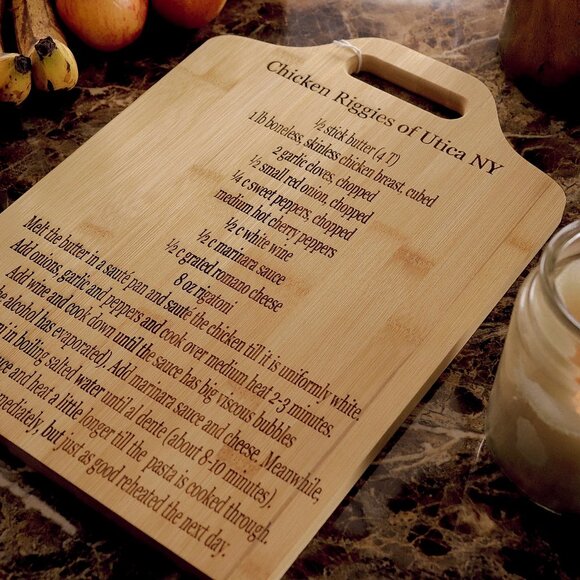 Chicken Riggies of Utica NY
½ stick butter (4 T)
1 lb boneless, skinless chicken breast, cubed
2 garlic cloves, chopped
½ small red onion, chopped
¼ c sweet peppers, chopped
medium hot cherry peppers
½ c white wine
½ c marinara sauce
½ c grated romano cheese
8 oz rigatoni
Melt the butter in a sauté pan and sauté the chicken till it is uniformly white.
Add onions, garlic and peppers and cook over medium heat 2-3 minutes.
Add wine and cook down until the sauce has big viscous bubbles
the alcohol has evaporated). Add marinara sauce and cheese. Meanwhile,
in boiling salted water until al dente (about 8-10 minutes).
and heat a little longer till the pasta is cooked through.
but just as good reheated the next day.